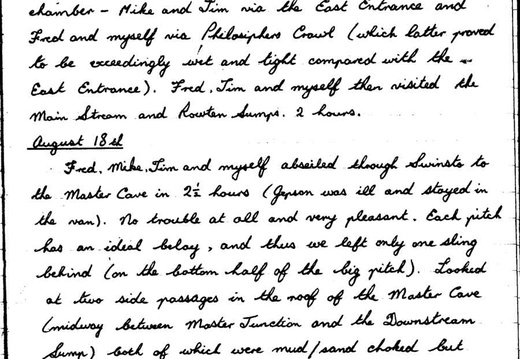 chamber - Mike and Jim via the East Entrance and
Fred and myself via Philosiphers Crawl (which latter proved
to be exceedingly wet and tight compared with the
East Entrance). Fred, Jim and myself then visited the
Main Stream and Rowten Sumps. 2 hours.
August 18th
Fred, Mike, Jim and myself abseiled through Swinsto to
the Master Cave in 2½ hours (Jepson was ill and stayed in
the van). No trouble at all and very pleasant. Each pitch
has an ideal belay, and thus we left only one sling
behind (on the bottom half of the big pitch). Looked
at two side passages in the roof of the Master Cave
(midway between Master Junction and the Downstream
Sump) both of which were mud/sand choked but